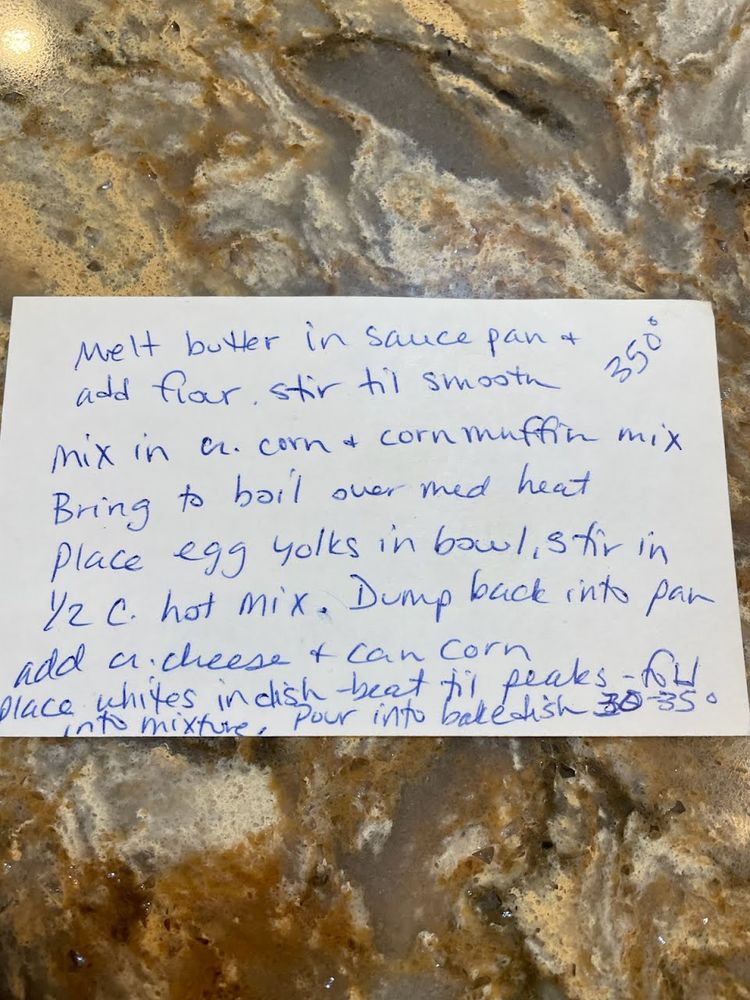 350°
Melt butter in sauce pan +
add flour. stir til smooth
mix in cr. corn + corn muffin mix
Bring to boil over med heat
Place egg yolks in bowl, stir in
1/2 C. hot mix. Dump back into pan
add cr. cheese + can corn
Place whites in dish - beat til peaks - fold
into mixture. Pour into bakedish 30-35°